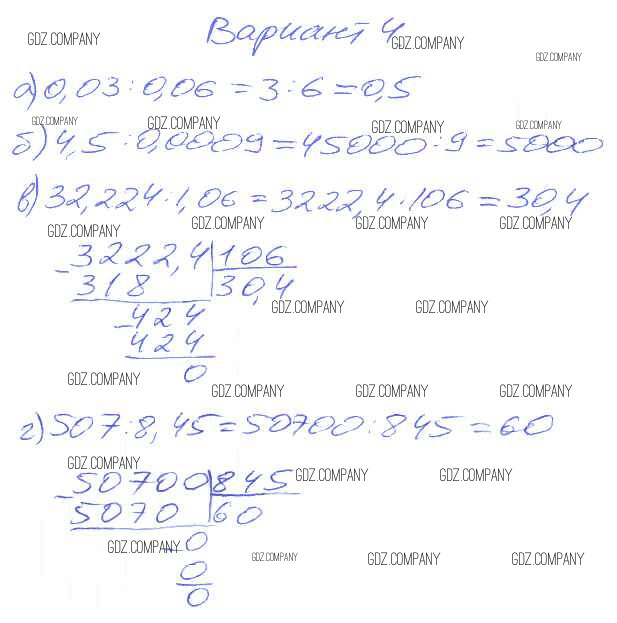 Вариант 4
GDZ.COMPANY GDZ.COMPANY GDZ.COMPANY
а) 0,03 : 0,06 = 3 : 6 = 0,5
GDZ.COMPANY GDZ.COMPANY GDZ.COMPANY GDZ.COMPANY
б) 4,5 : 0,0009 = 45000 : 9 = 5000
в) 32,224 : 1,06 = 3222,4 : 106 = 30,4
GDZ.COMPANY GDZ.COMPANY GDZ.COMPANY GDZ.COMPANY
3222,4 | 106
- 318 | 30,4
GDZ.COMPANY GDZ.COMPANY
- 424
424
0
GDZ.COMPANY GDZ.COMPANY GDZ.COMPANY GDZ.COMPANY
г) 507 : 8,45 = 50700 : 845 = 60
GDZ.COMPANY GDZ.COMPANY GDZ.COMPANY
50700 | 845
- 5070 | 60
0
GDZ.COMPANY GDZ.COMPANY GDZ.COMPANY GDZ.COMPANY
- 0
0